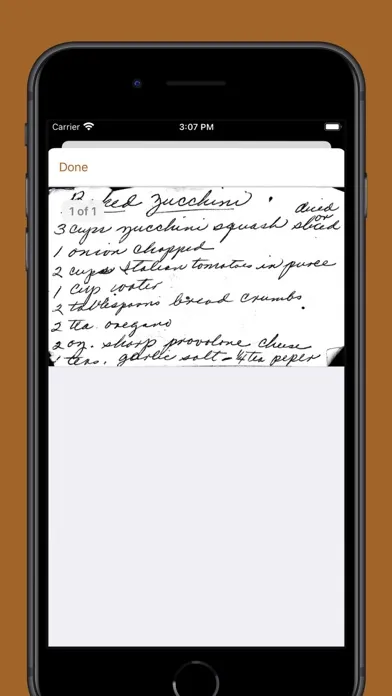 Carrier 3:07 PM
Done
1 of 1
12 ked Zucchini diced
or
3 cups zucchini squash sliced
1 onion chopped
2 cups Italian tomatoes in puree
1 cup water
2 tablespoons bread crumbs
2 tea oregano
2 oz. sharp provolone cheese
1 teas. garlic salt - 1/4 tea peper